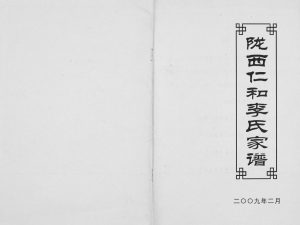 陇西仁和李氏家谱
二〇〇九年二月